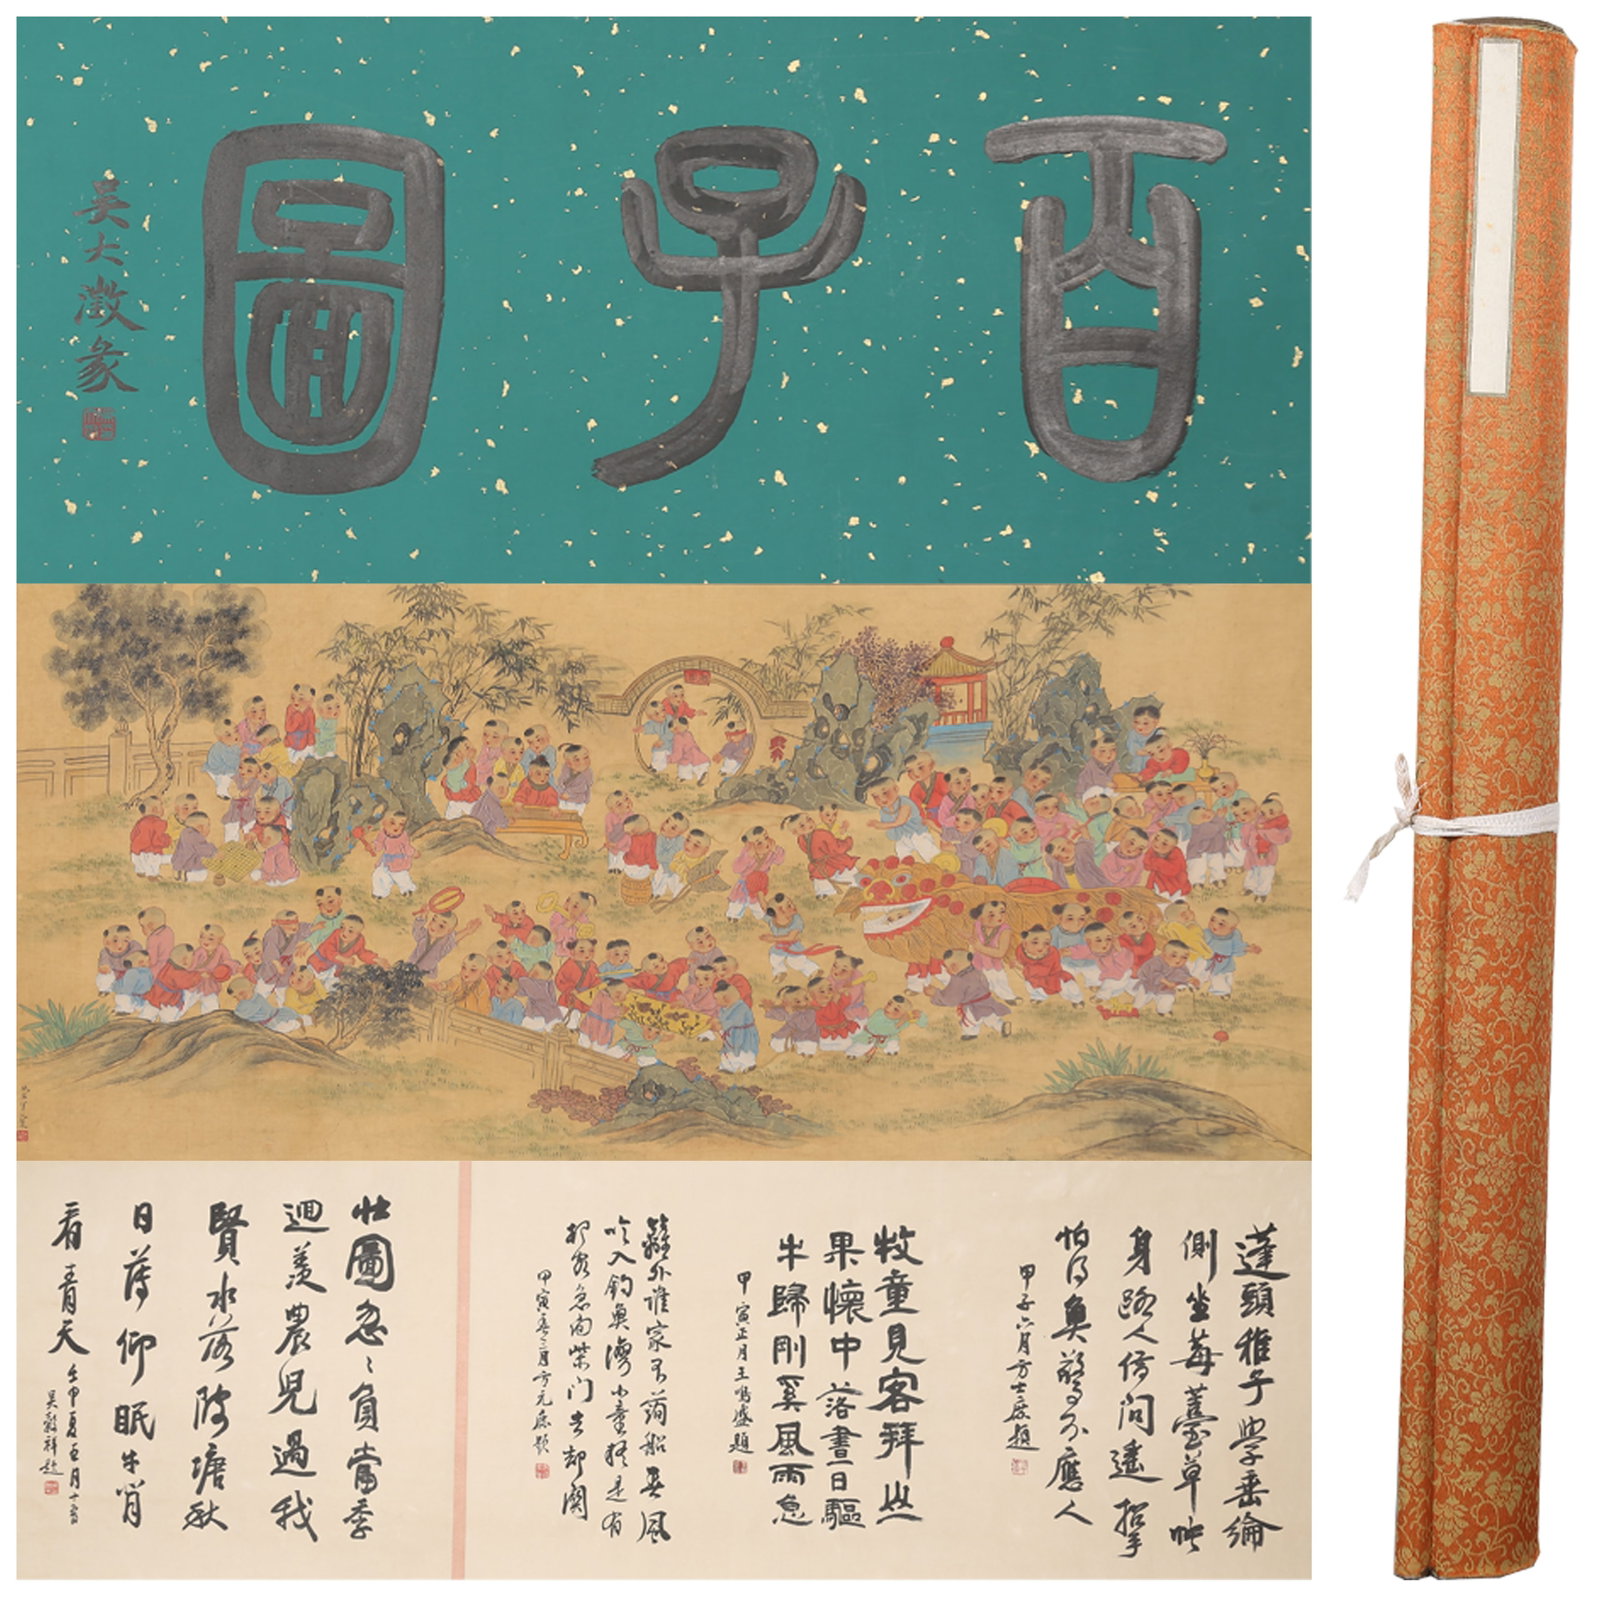 百子圖
吳大澂篆
蓬頭稚子學垂綸
側坐莓薹草映
身路人借問遙招手
怕得魚驚不應人
甲子六月方士庶題
牧童見客拜山
果懷中落晝日驅
牛歸剛奚風雨急
甲寅正月王鳴盛題
籬外誰家不繫船春風
吹入釣魚灣小童疑是有
村客急向柴門去却關
甲寅春三月方元鹿題
壯圖忽〻負當季
迴羨農兒過我
賢水落陂塘秋
日薄仰眠牛背
看青天
壬申夏五月十二日
吳穀祥題